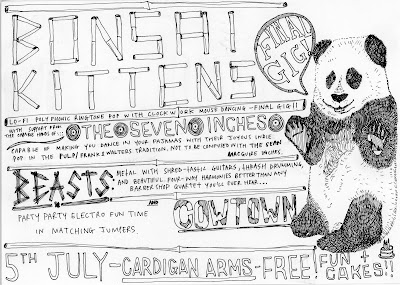 BONSAI
KITTENS
FINAL GIG!
LO-FI POLYPHONIC RINGTONE POP WITH CLOCKWORK MOUSE DANCING - FINAL GIG!!
WITH SUPPORT FROM THE CAPABLE HANDS OF...
THE SEVEN INCHES
CAPABLE OF MAKING YOU DANCE IN YOUR PAJAMAS WITH THEIR JOYOUS INDIE
POP IN THE PULP/FRANK & WALTERS TRADITION. NOT TO BE CONFUSED WITH THE SEAN
MACGUIRE INCHES.
BEASTS:
METAL WITH SHRED-TASTIC GUITARS, THRASH DRUMMING,
AND BEAUTIFUL FOUR-WAY HARMONIES BETTER THAN ANY
BARBERSHOP QUARTET YOU'LL EVER HEAR...
AND
COWTOWN
PARTY PARTY ELECTRO FUN TIME
IN MATCHING JUMPERS
5TH JULY - CARDIGAN ARMS - FREE! FUN + CAKES!!